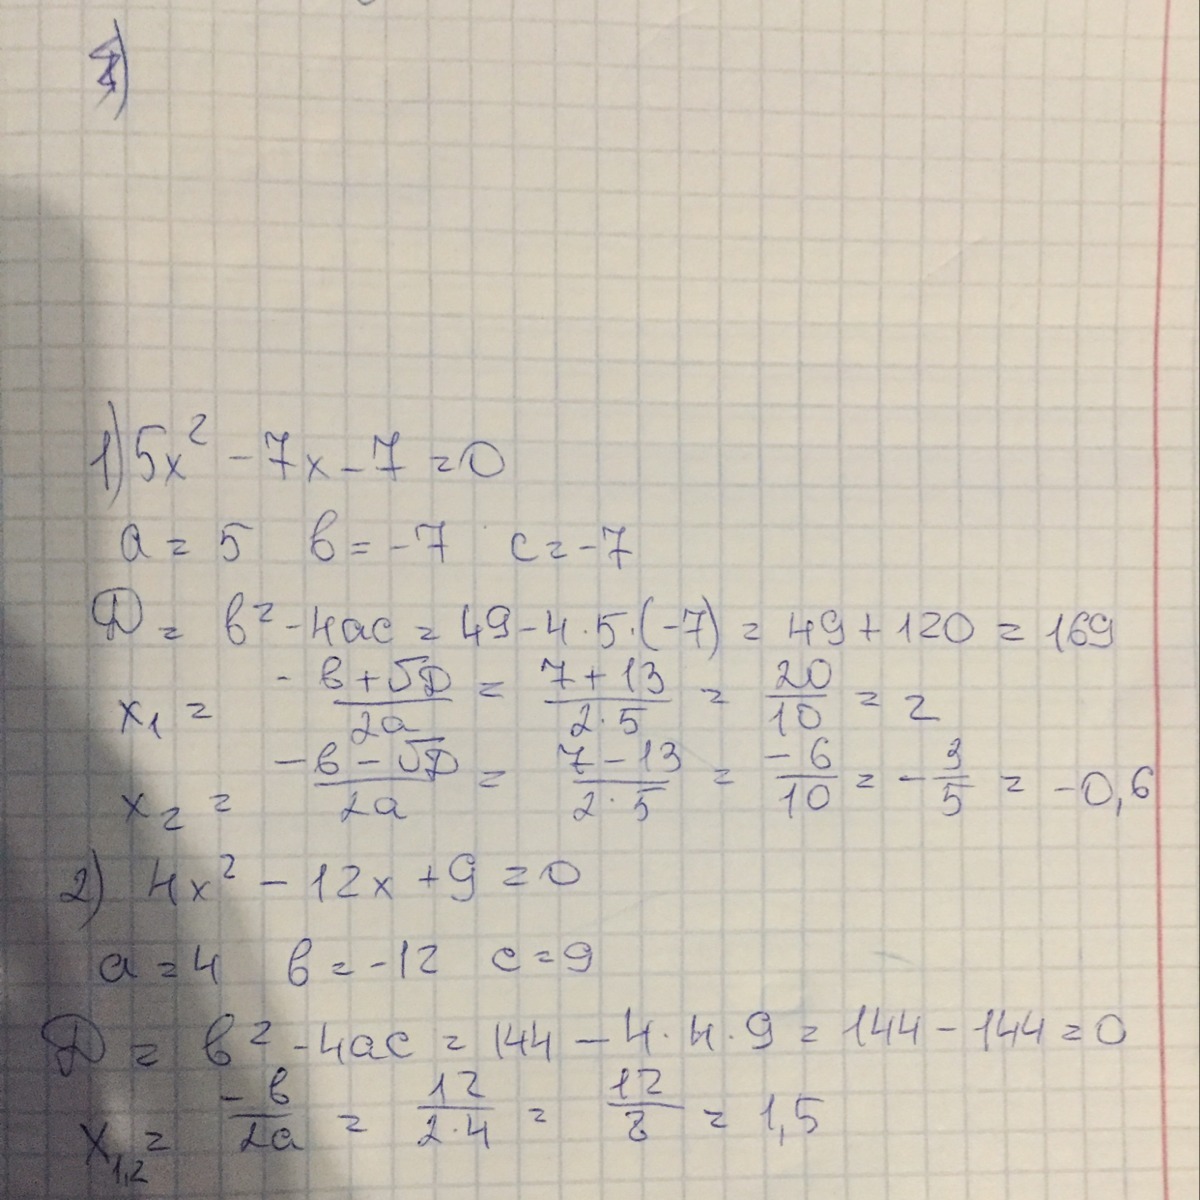 1) 5x² - 7x - 7 = 0
a = 5 в = -7 c = -7
Д = в² - 4ac = 49 - 4·5·(-7) = 49 + 120 = 169
x₁ = -в+√Д / 2a = 7+13 / 2·5 = 20/10 = 2
x₂ = -в-√Д / 2a = 7-13 / 2·5 = -6/10 = -3/5 = -0,6
2) 4x² - 12x + 9 = 0
a = 4 в = -12 c = 9
Д = в² - 4ac = 144 - 4·4·9 = 144 - 144 = 0
x₁,₂ = -в/2a = 12/2·4 = 12/8 = 1,5